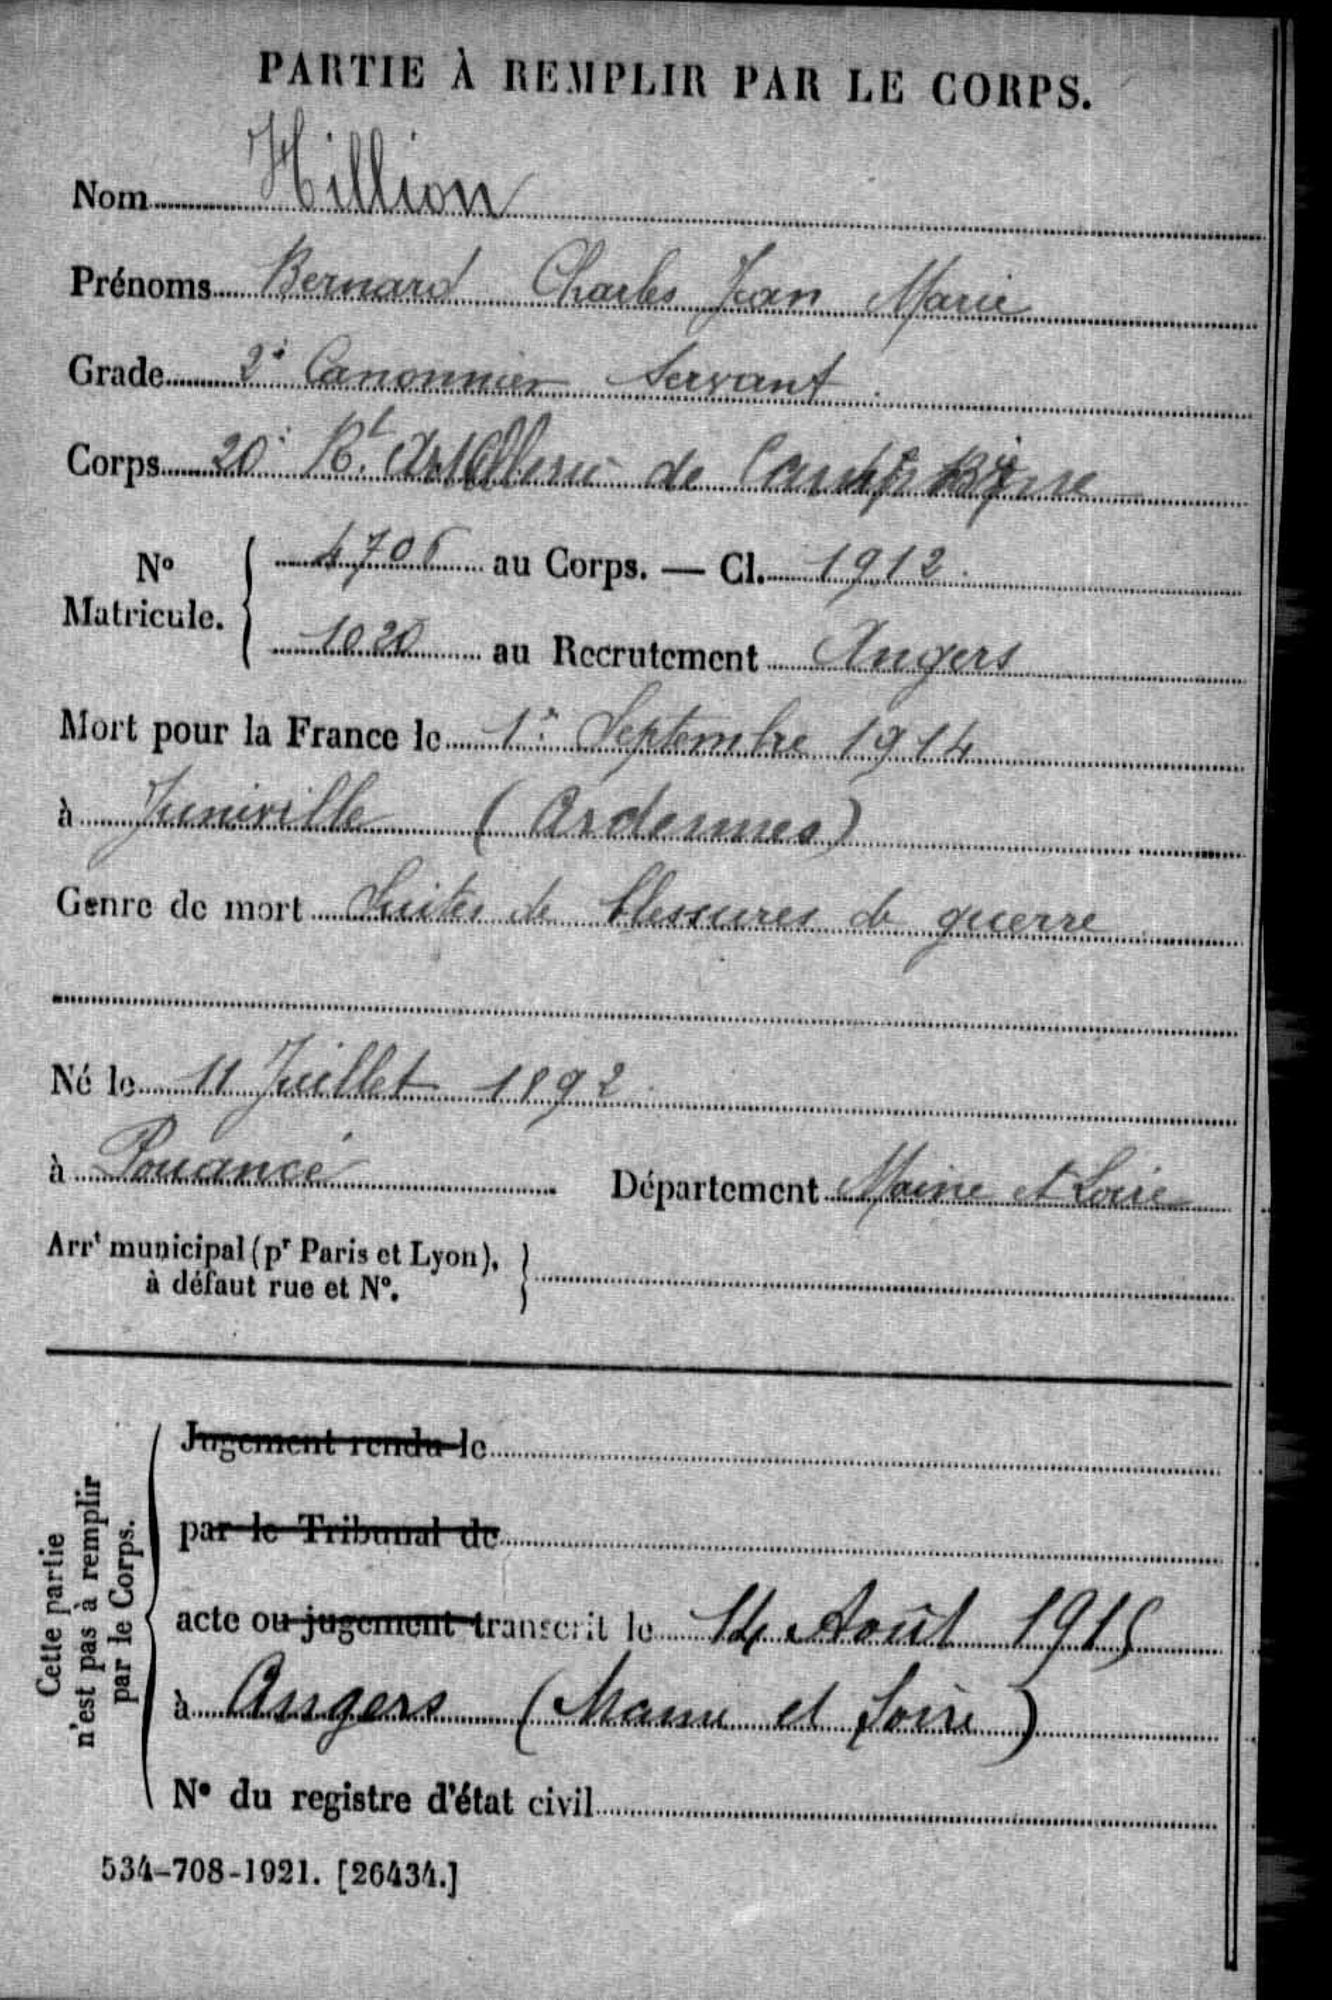 PARTIE À REMPLIR PAR LE CORPS.
Nom Hillion
Prénoms Bernard Charles Jean Marie
Grade 2e Canonnier Servant.
Corps 20e Rt Artillerie de
No Matricule. { 4706 au Corps. — Cl. 1912.
1020 au Recrutement Angers
Mort pour la France le 1er Septembre 1914
à Juniville (Ardennes)
Genre de mort Suites de blessures de guerre
Né le 11 Juillet 1892.
à Pouancé Département Maine et Loire
Arrt municipal (pr Paris et Lyon), à défaut rue et No. }
Cette partie n'est pas à remplir par le Corps.
Jugement rendu le
par le Tribunal de
acte ou jugement transcrit le 14 Août 1915
à Angers (Maine et Loire)
No du registre d'état civil
534-708-1921. [26434.]